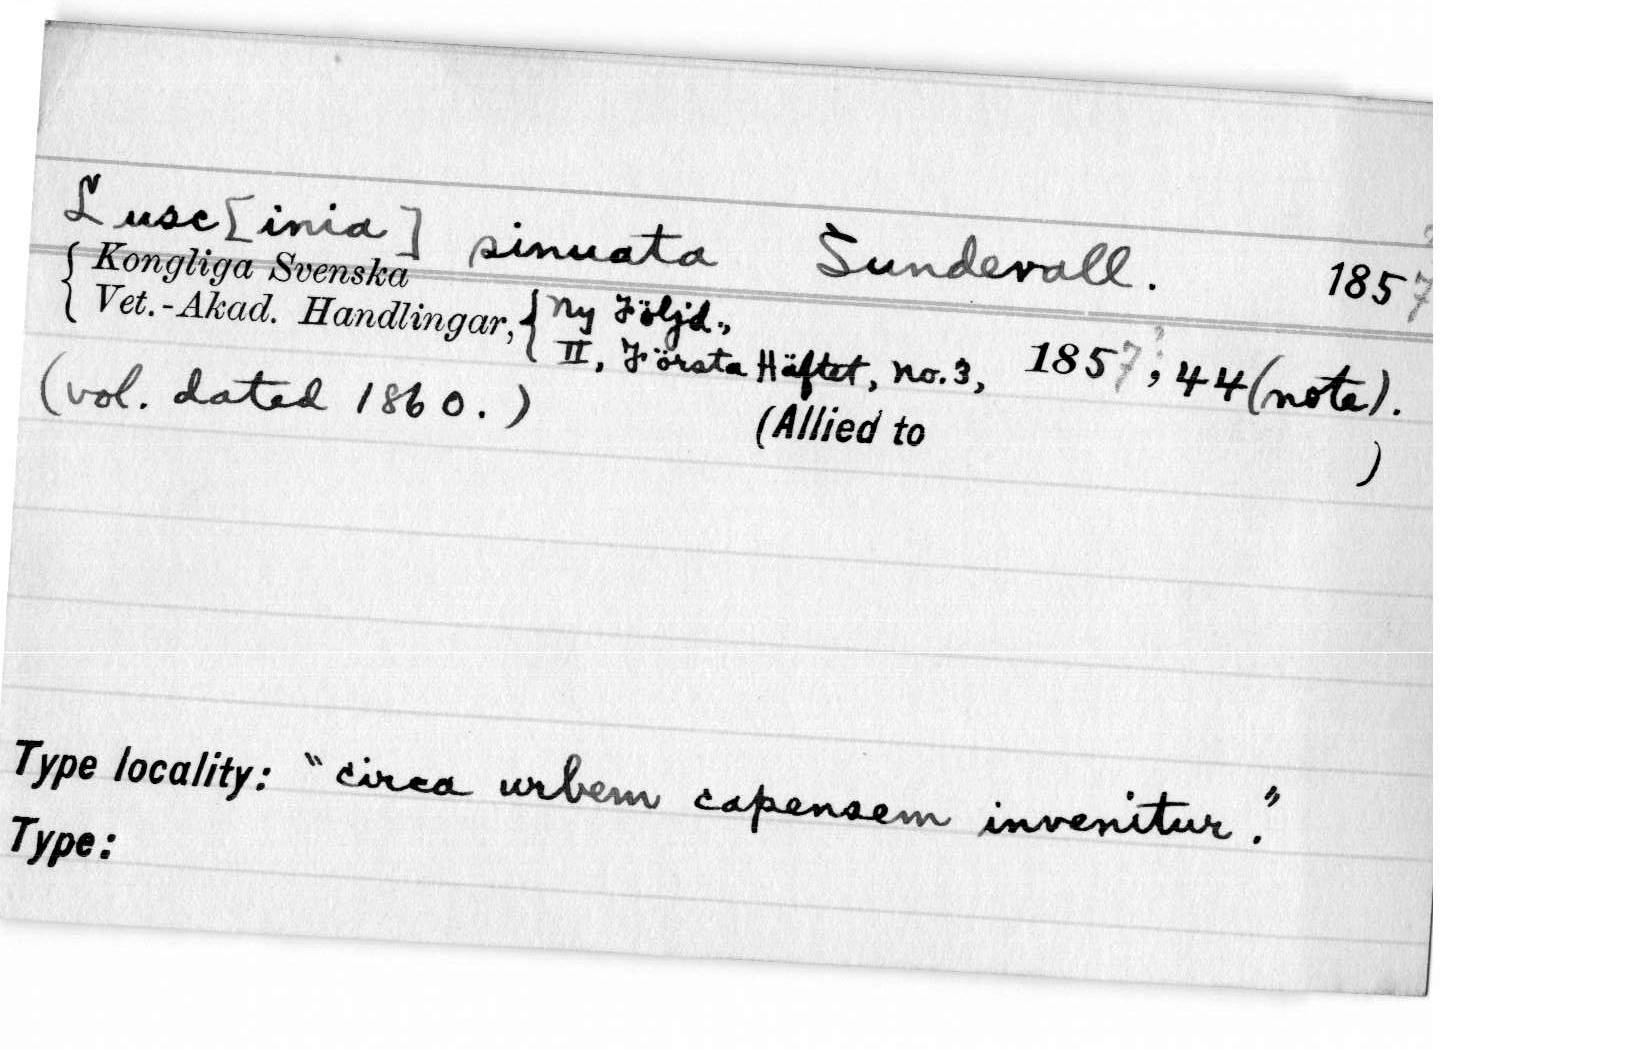 Lusc[inia] sinuata Sundevall. 1857?
{Kongliga Svenska
Vet.-Akad. Handlingar, {Ny Följd.,
II, Första Häftet, No. 3, 1857?; 44 (note).
(vol. dated 1860.)
(Allied to )
Type locality: "circa urbem capensem invenitur."
Type: